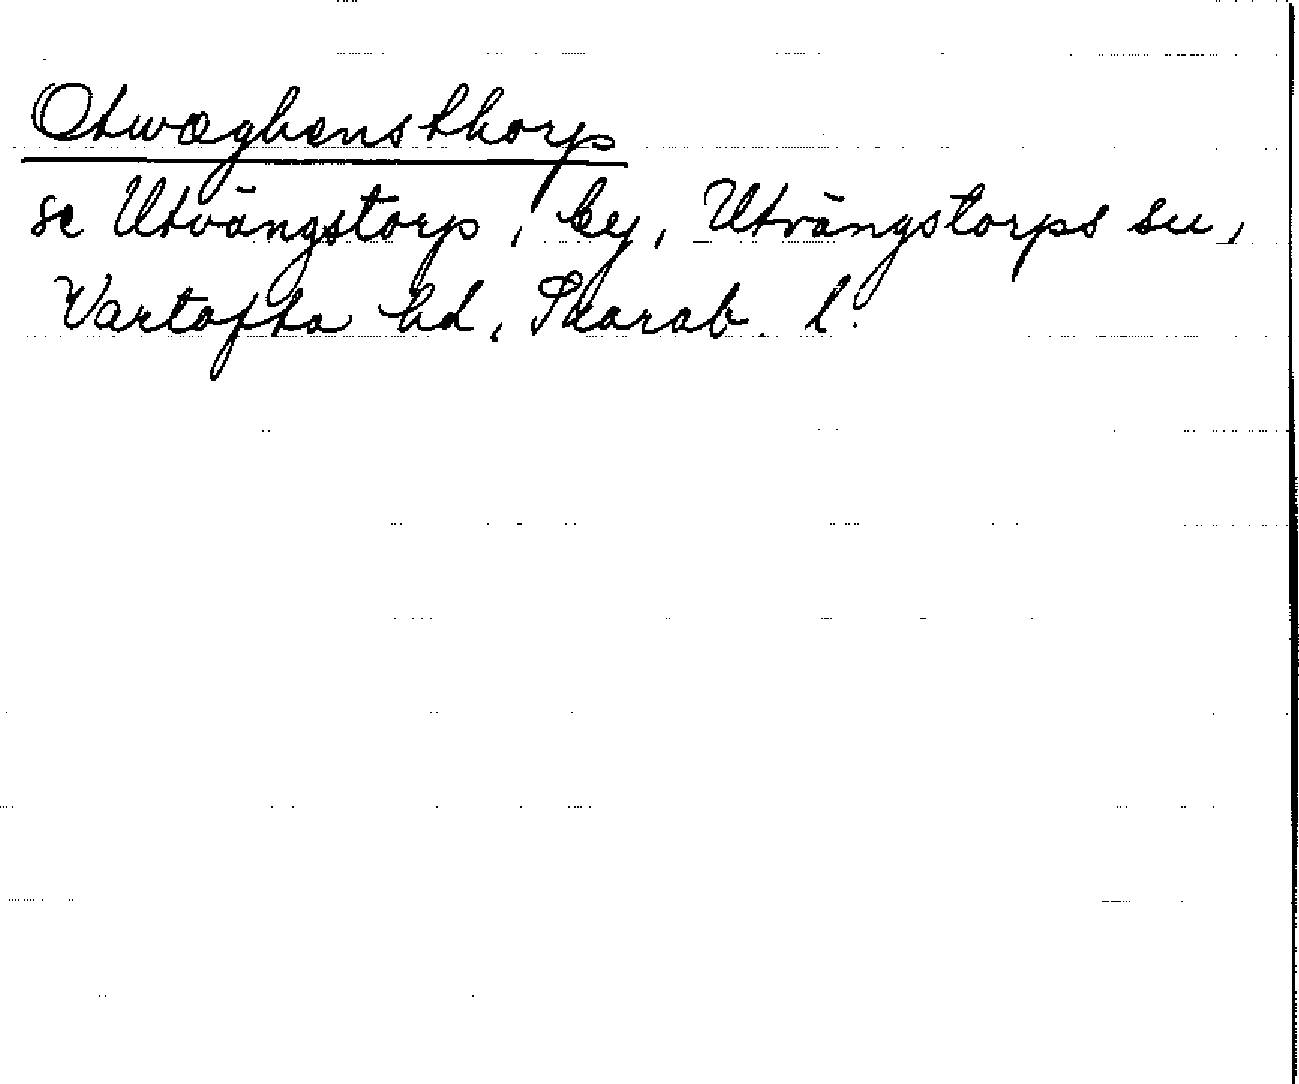 Otwæghens thorp
se Utvängstorp, by, Utvängstorps sn,
Vartofta hd, Skarab. l.